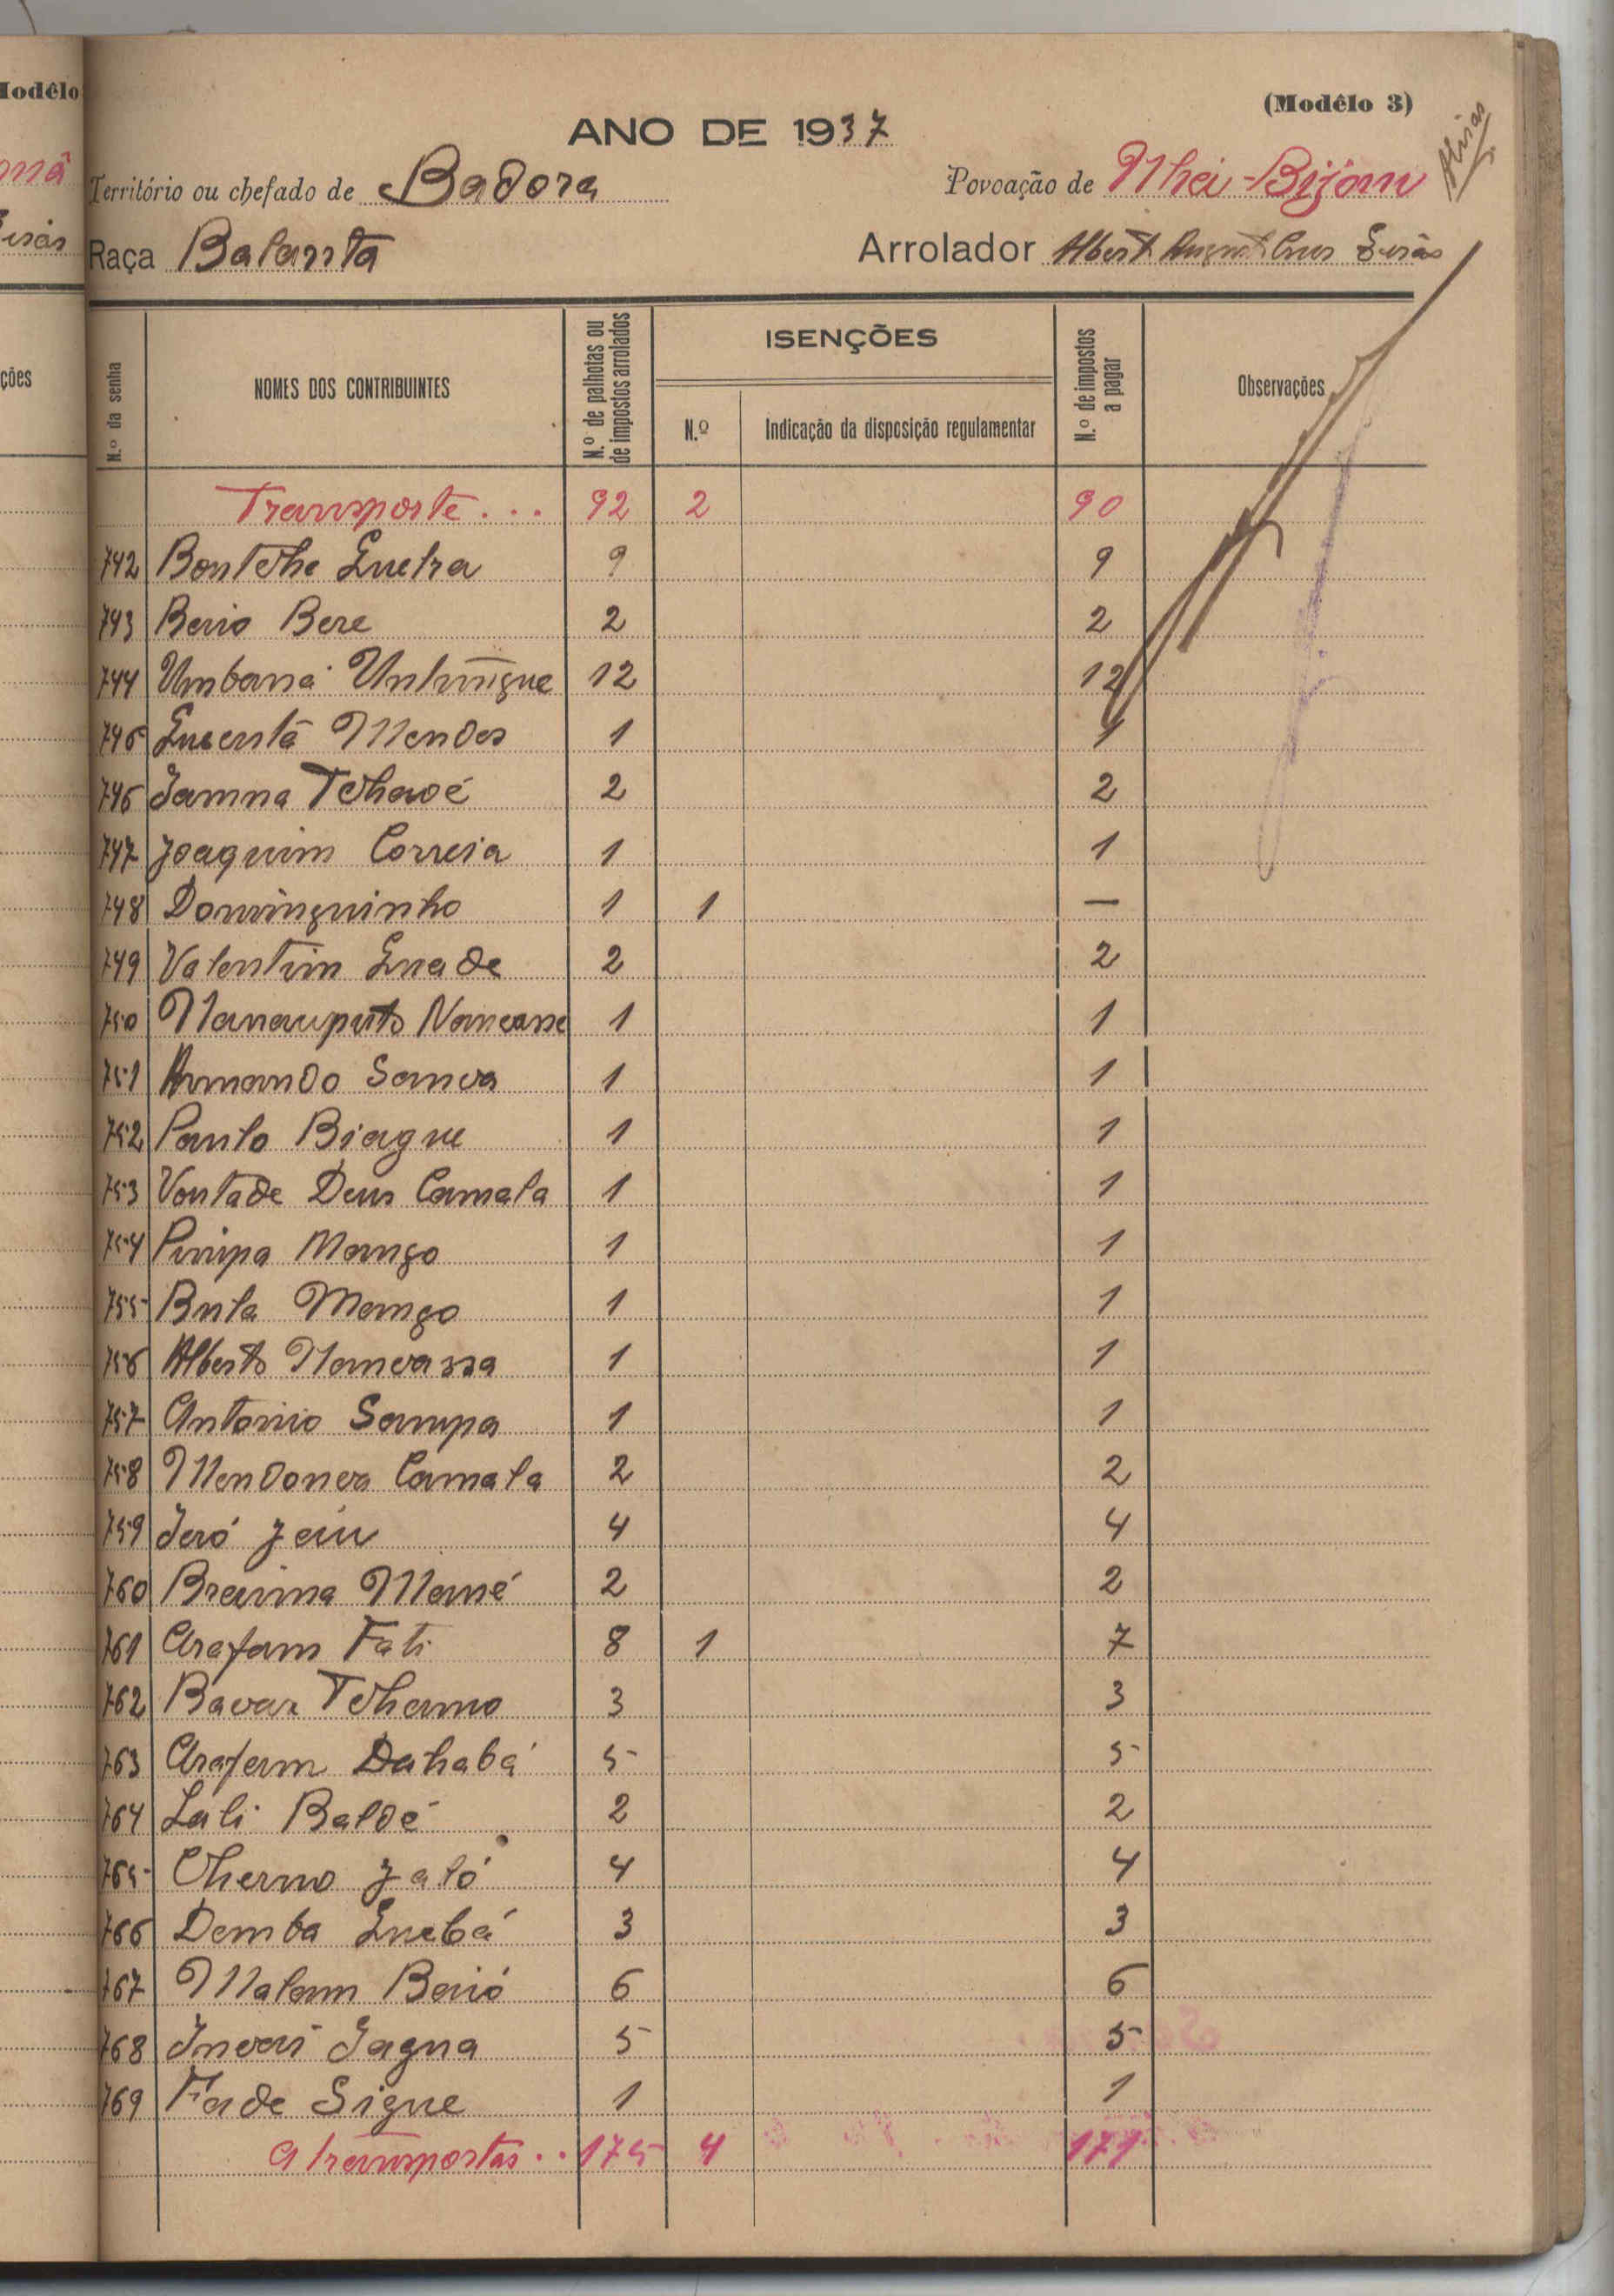 (Modêlo 3)
ANO DE 1937
Território ou chefado de Badora Povoação de Nhei-Bijom
Raça Balanta Arrolador Albert August Cruz
N.º da senha NOMES DOS CONTRIBUINTES N.º de palhotas ou de impostos arrolados ISENÇÕES N.º Indicação da disposição regulamentar N.º de impostos a pagar Observações
Transporte... 92 2 90
742 Bontche Guetra 9 9
743 Berio Bere 2 2
744 Umbana 12 12
745 Mendes 1 1
746 Jamna Tchavé 2 2
747 Joaquim Correia 1 1
748 Dominguinho 1 1 —
749 Valentim Guade 2 2
750 1 1
751 Armando Sanca 1 1
752 Paulo Biague 1 1
753 Vontade Deus Camala 1 1
754 Mango 1 1
755 Bula Mango 1 1
756 Alberto Nancassa 1 1
757 Antonio Sampa 1 1
758 Mendonca Camala 2 2
759 Jeró 4 4
760 Braima Mané 2 2
761 Arafam Fati 8 1 7
762 Bacar Tcherno 3 3
763 Arafam Dahabá 5 5
764 Lali Baldé 2 2
765 Cherno Jaló 4 4
766 Demba Guebá 3 3
767 Malam Berió 6 6
768 Jagna 5 5
769 Fade Sigue 1 1
A transportar.. 175 4 171
Modêlo
ções